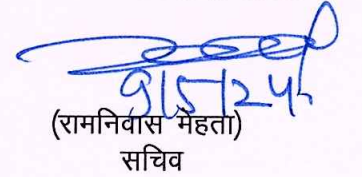 9/5/24
(रामनिवास मेहता)
सचिव